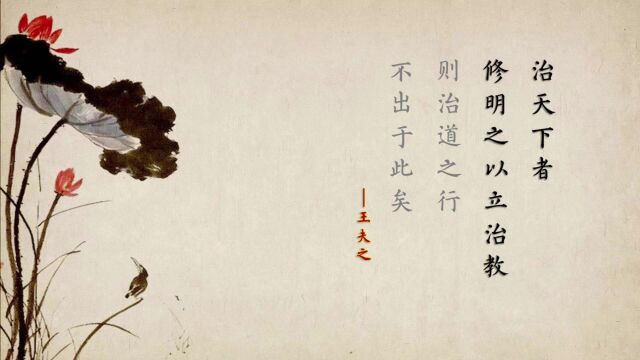 治天下者
修明之以立治教
则治道之行
不出于此矣
—王夫之